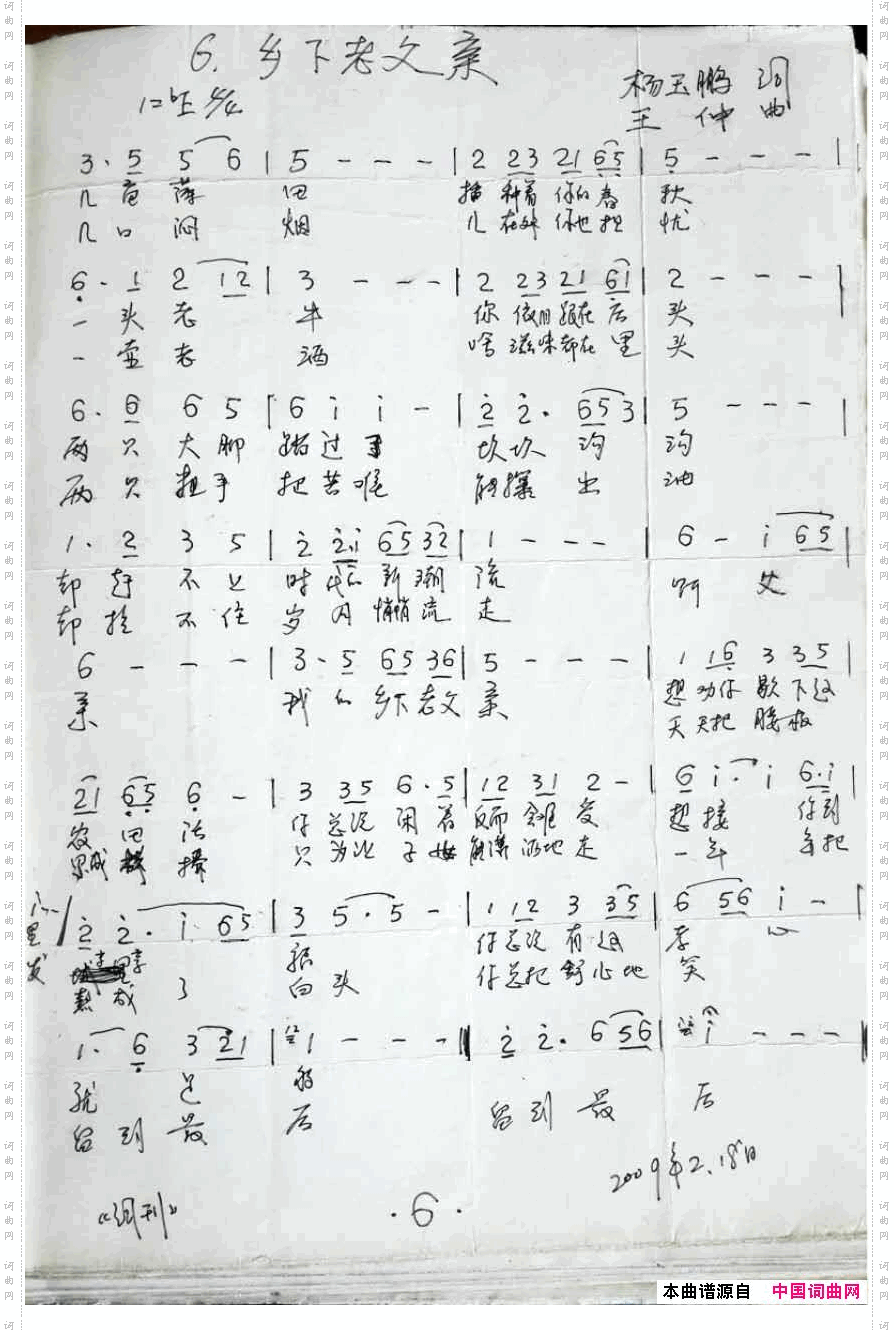 6. 乡下老父亲
1=♭E 4/4
杨玉鹏 词
王 仲 曲
3· 5 5 6 | 5 - - - | 2 23 21 65 | 5 - - - |
几 亩 薄 田 播 种着 你的 春 秋
几 口 闷 烟 儿 在外 你也 担 忧
6· 1 2 12 | 3 - - - | 2 23 21 61 | 2 - - - |
一 头 老 牛 你 依旧 跟在 后 头
一 壶 老 酒 啥 滋味 都在 里 头
6· 6 6 5 | 6 i i - | 2 2· 65 3 | 5 - - - |
两 只 大 脚 踏 过 了 坎 坎 沟 沟
两 只 粗 手 把 苦 难 出 油
1· 2 3 5 | 2 2·i 65 32 | 1 - - - | 6 - i 65 |
却 赶 不 上 时 代的 新 潮 流 啊 父
却 拉 不 住 岁 月 悄悄 流 走
6 - - - | 3· 5 65 36 | 5 - - - | 1 16 3 35 |
亲 我 的 乡下 老父 亲 想 劝你 歇 下这
天 天把 腰 板
21 65 6 - | 3 35 6· 5 | 12 31 2 - | 6 i· i 6·i |
农 田 活 你 总说 闲 着 反而 会难 受 想 接 你到
只 为让 子 女 洒地 走 一 年 年把
城里
黑发
2 2· i 65 | 3 5· 5 - | 1 12 3 35 | 6 56 i - |
享 享
熬 成 了 白 头 你 总说 有 这 孝 心
你 总把 舒 心 地 笑
1· 6 3 21 | 1 - - - | 2 2· 6 56 | i - - - |
就 是
留 到 最 后 留 到 最 后
2009年2.18日
《词刊》
·6·
本曲谱源自 中国词曲网
词曲网